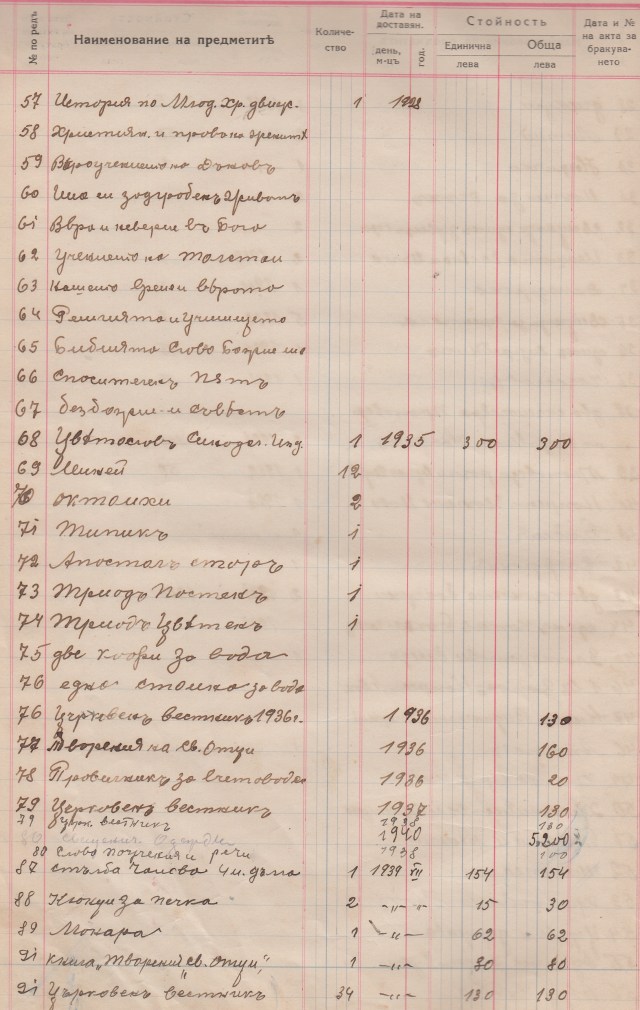 № по редъ Наименование на предметитѣ Количество Дата на доставян. Стойность Дата и № на акта за бракуването
день, м-цъ год. Единична лева Обща лева
57 История по Млод. Хр. движ. 1 1928
58 Християн. и права на
59 Вѣроучението на Дънов
60 Има ли задгробен живот
61 Вѣра и неверие въ Бога
62 Учението на Толстои
63 Нашето време и вѣрата
64 Религията и Училището
65 Библията Слово Божие ли
66 Спасителенъ пѫть
67 безбожие и съвѣсть
68 Цвѣтослов Синодал. Изд. 1 1935 300 300
69 Миней 12
70 октоихи 2
71 Типикъ 1
72 Апостолъ старъ 1
73 Триодъ Постенъ 1
74 Триодъ Цвѣтенъ 1
75 две кофи за вода
76 една стомна за вода
76 Църковенъ вестникъ 1936 г. 1936 130
77 Творения на Св. Отци 1936 160
78 Правилникъ за Счетоводс 1936 20
79 Церковенъ вестникъ 1937 130
79 Църк. вестникъ 1938 130
80 Одежди 1940 5,200
80 Слова поучения и речи 1938 100
87 стълба Чамова 4 м. дълга 1 1939 VII 154 154
88 Кюнци за печка 2 -„- „ 15 30
89 1 -„- 62 62
91 книга „Творения Св. Отци„ 1 -„- 80 80
91 Църковенъ вестникъ 34 -„- 130 130